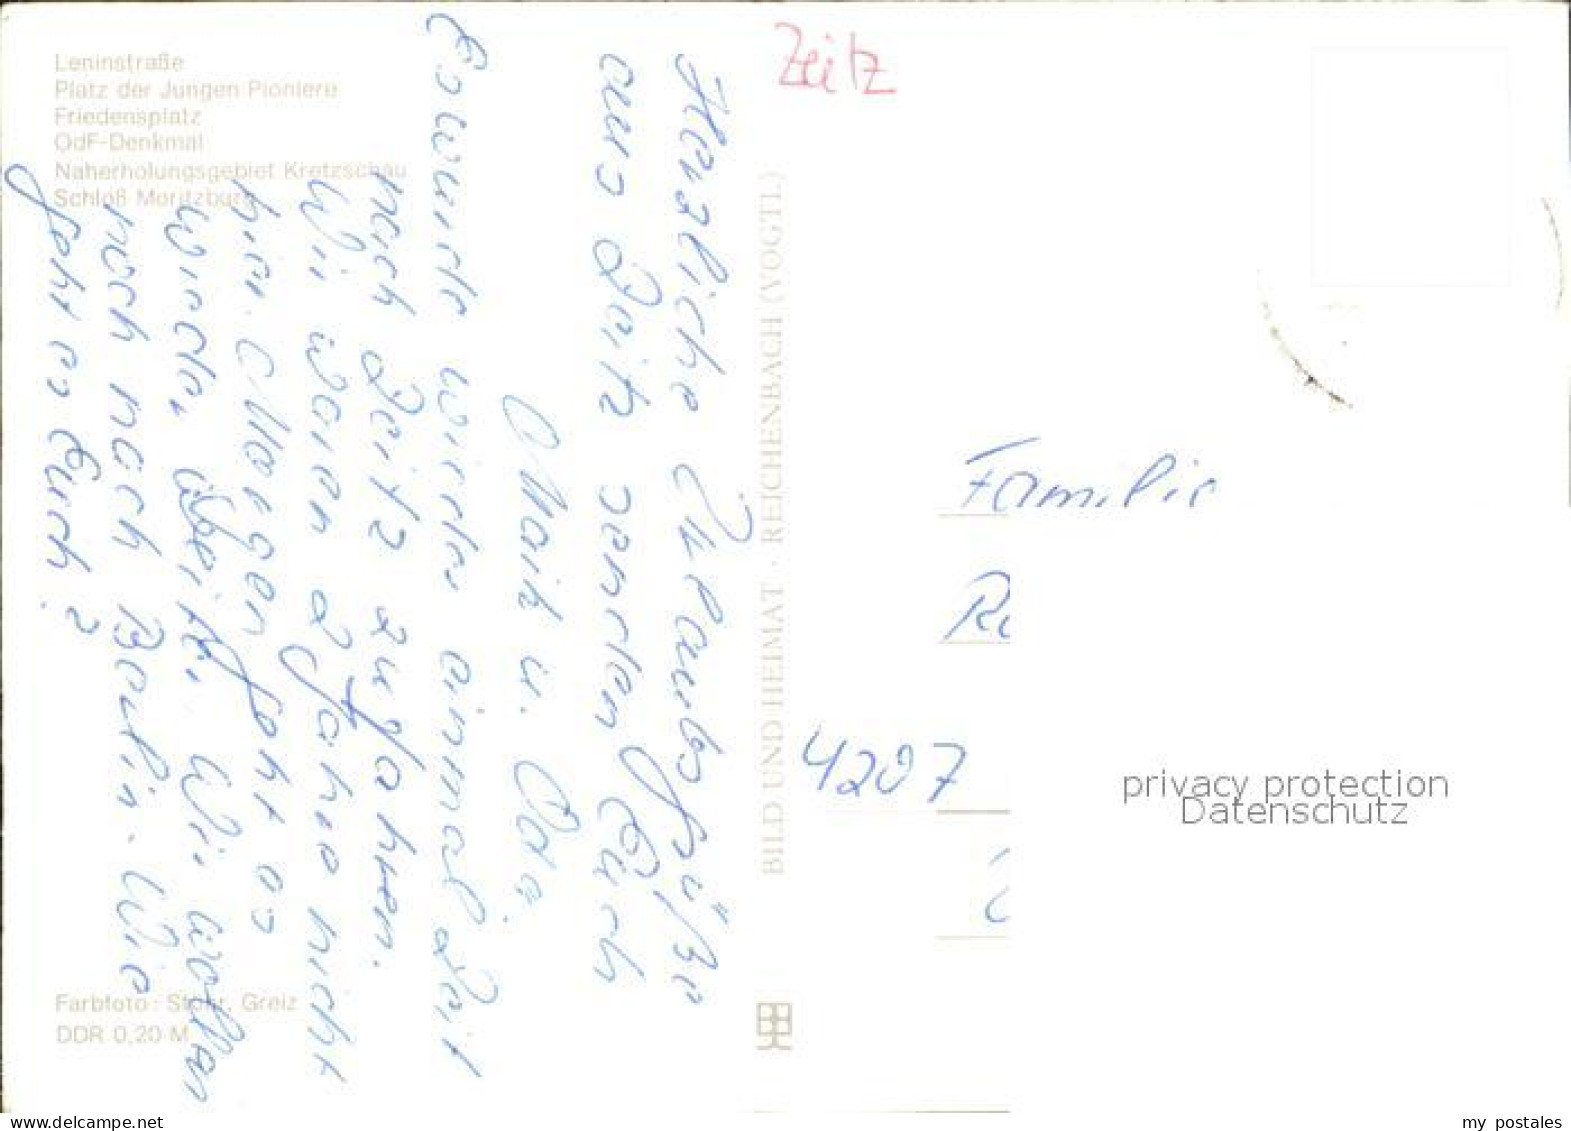 Leninstraße
Platz der Jungen Pioniere
Friedensplatz
OdF-Denkmal
Naherholungsgebiet Kretzschau
Schloß Moritzburg
Zeitz
Herzliche Urlaubsgrüße
aus Zeitz senden Euch
Maik u. Oda.
Es wurde wieder einmal Zeit
nach Zeitz zu fahren.
Wir waren 2 Jahre nicht
hier. Morgen geht es
wieder weiter. Wir wollen
noch nach Berlin. Wie
geht es Euch?
BILD UND HEIMAT · REICHENBACH (VOGTL)
Familie
4207
privacy protection
Datenschutz
Farbfoto: Stöhr, Greiz
DDR 0,20 M
my_postales